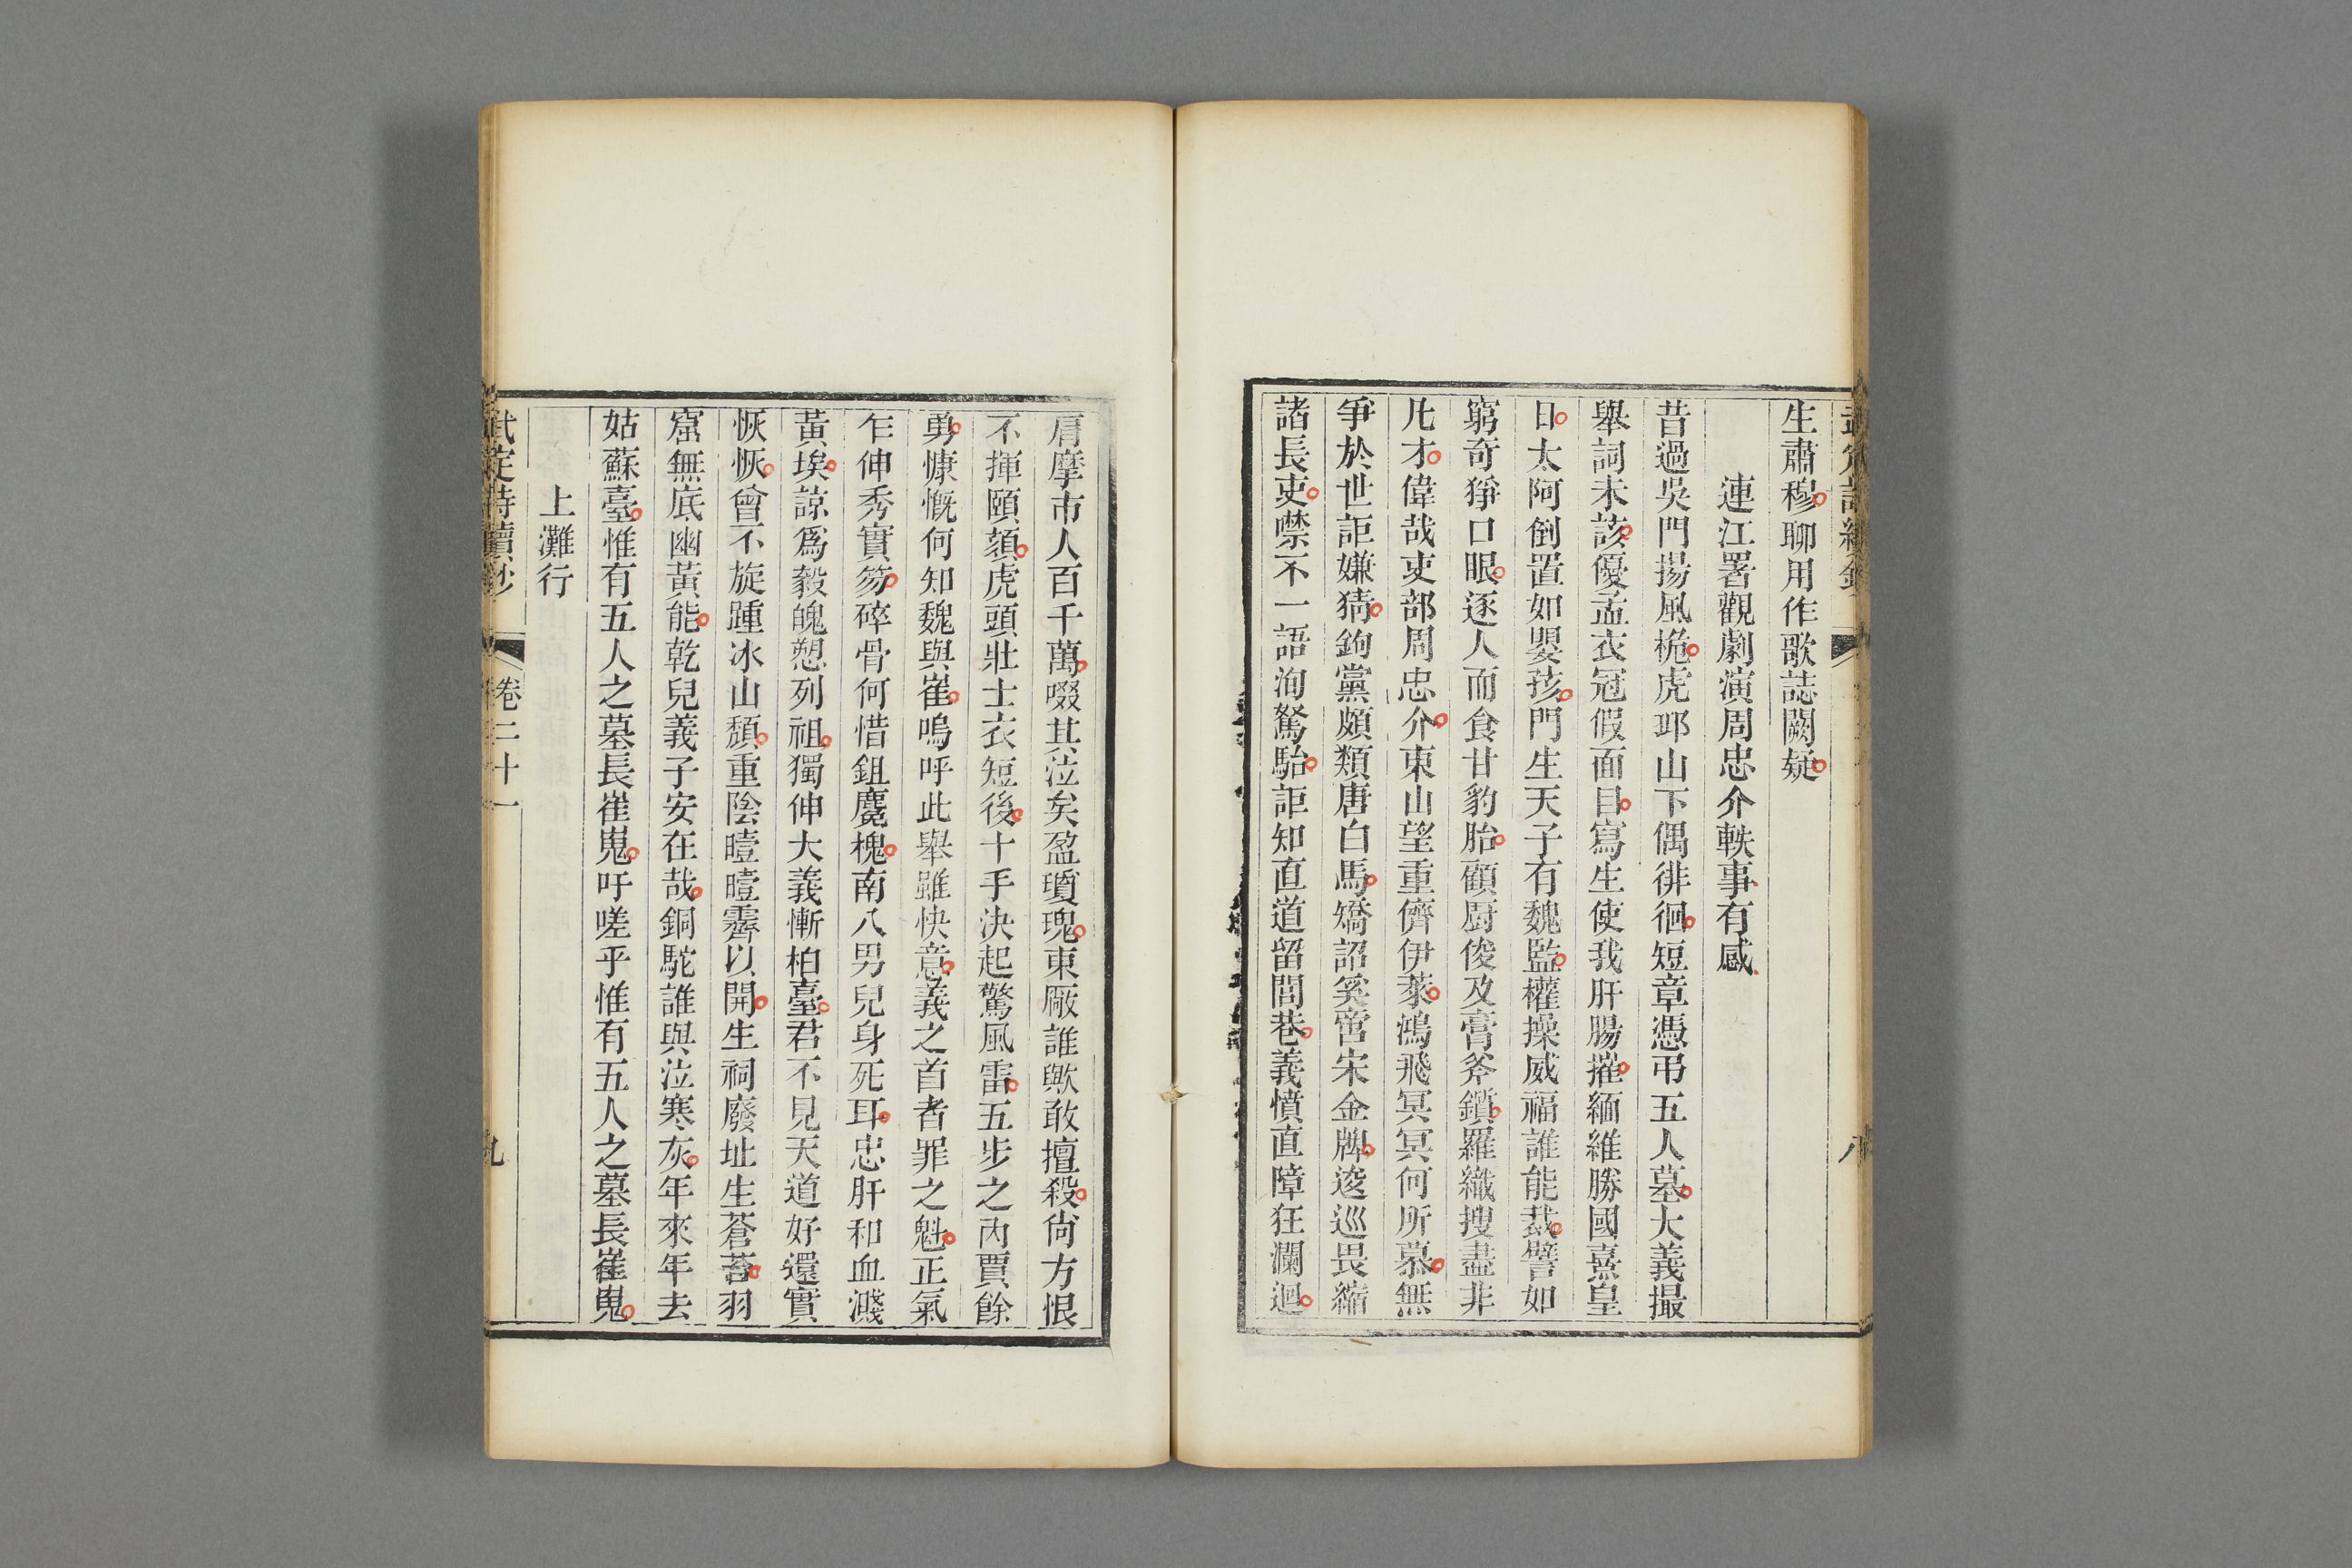 生肅穆聊用作歌誌闕疑
連江署觀劇演周忠介軼事有感
昔過吳門揚風桅虎邱山下偶徘徊短章憑弔五人墓大義撮
舉詞未該優孟衣冠假面目寫生使我肝腸摧緬維勝國熹皇
日太阿倒置如嬰孩門生天子有魏監權操威福誰能裁譬如
窮奇猙口眼逐人而食甘豹胎顧厨俊及膏斧鑕羅織搜盡非
凡才偉哉吏部周忠介東山望重儕伊萊鴻飛冥冥何所慕無
爭於世詎嫌猜鉤黨頗類唐白馬矯詔奚啻宋金牌逡巡畏縮
諸長吏噤不一語洵駑駘詎知直道留閭巷義憤直障狂瀾迴
肩摩市人百千萬啜其泣矣盈瓊瑰東廠誰歟敢擅殺尙方恨
不揮頤頦虎頭壯士衣短後十手決起驚風雷五步之內賈餘
勇慷慨何知魏與崔嗚呼此舉雖快意義之首者罪之魁正氣
乍伸秀實笏碎骨何惜鉏麑槐南八男兒身死耳忠肝和血濺
黃埃諒爲毅魄愬列祖獨伸大義慚柏臺君不見天道好還實
恢恢曾不旋踵冰山頽重陰曀曀霽以開生祠廢址生蒼苔羽
窟無底幽黃能乾兒義子安在哉銅駝誰與泣寒灰年來年去
姑蘇臺惟有五人之墓長崔嵬吁嗟乎惟有五人之墓長崔嵬
上灘行
武定詩續鈔 卷二十一 九